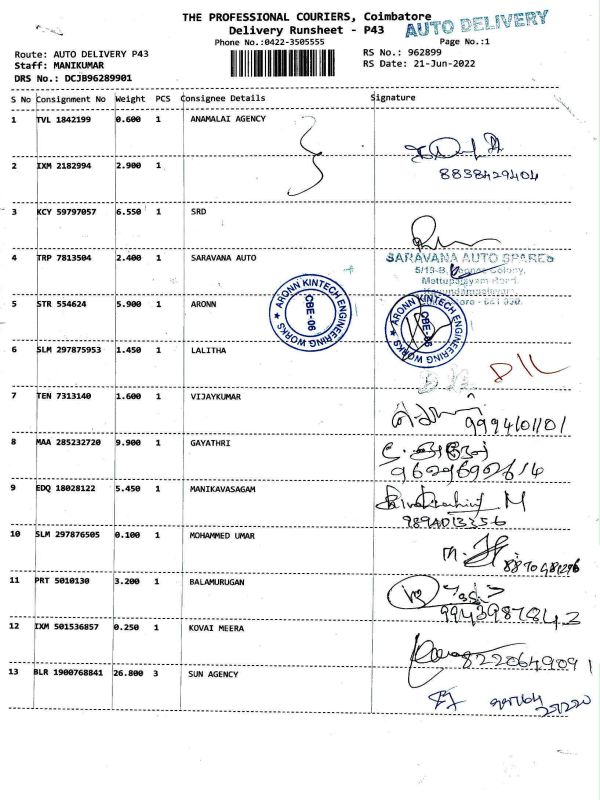 THE PROFESSIONAL COURIERS, Coimbatore
AUTO DELIVERY
Delivery Runsheet - P43
Phone No.:0422-3505555
Page No.:1
Route: AUTO DELIVERY P43
RS No.: 962899
Staff: MANIKUMAR
RS Date: 21-Jun-2022
DRS No.: DCJB96289901
S No Consignment No Weight PCS Consignee Details Signature
1 TVL 1842199 0.600 1 ANAMALAI AGENCY
8838429404
2 IXM 2182994 2.900 1
3 KCY 59797057 6.550 1 SRD
4 TRP 7813504 2.400 1 SARAVANA AUTO
SARAVANA AUTO SPARES
Colony,
Mettupalayam Road,
5 STR 554624 5.900 1 ARONN
ARONN KINTECH ENGINEERING WORKS
CBE-06
ARONN KINTECH ENGINEERING WORKS
CBE-06
6 SLM 297875953 1.450 1 LALITHA
7 TEN 7313140 1.600 1 VIJAYKUMAR
9994101101
8 MAA 285232720 9.900 1 GAYATHRI
9629692614
9 EDQ 18028122 5.450 1 MANIKAVASAGAM
10 SLM 297876505 0.100 1 MOHAMMED UMAR
11 PRT 5010130 3.200 1 BALAMURUGAN
9943987842
12 IXM 501536857 0.250 1 KOVAI MEERA
8220649091
13 BLR 1900768841 26.800 3 SUN AGENCY